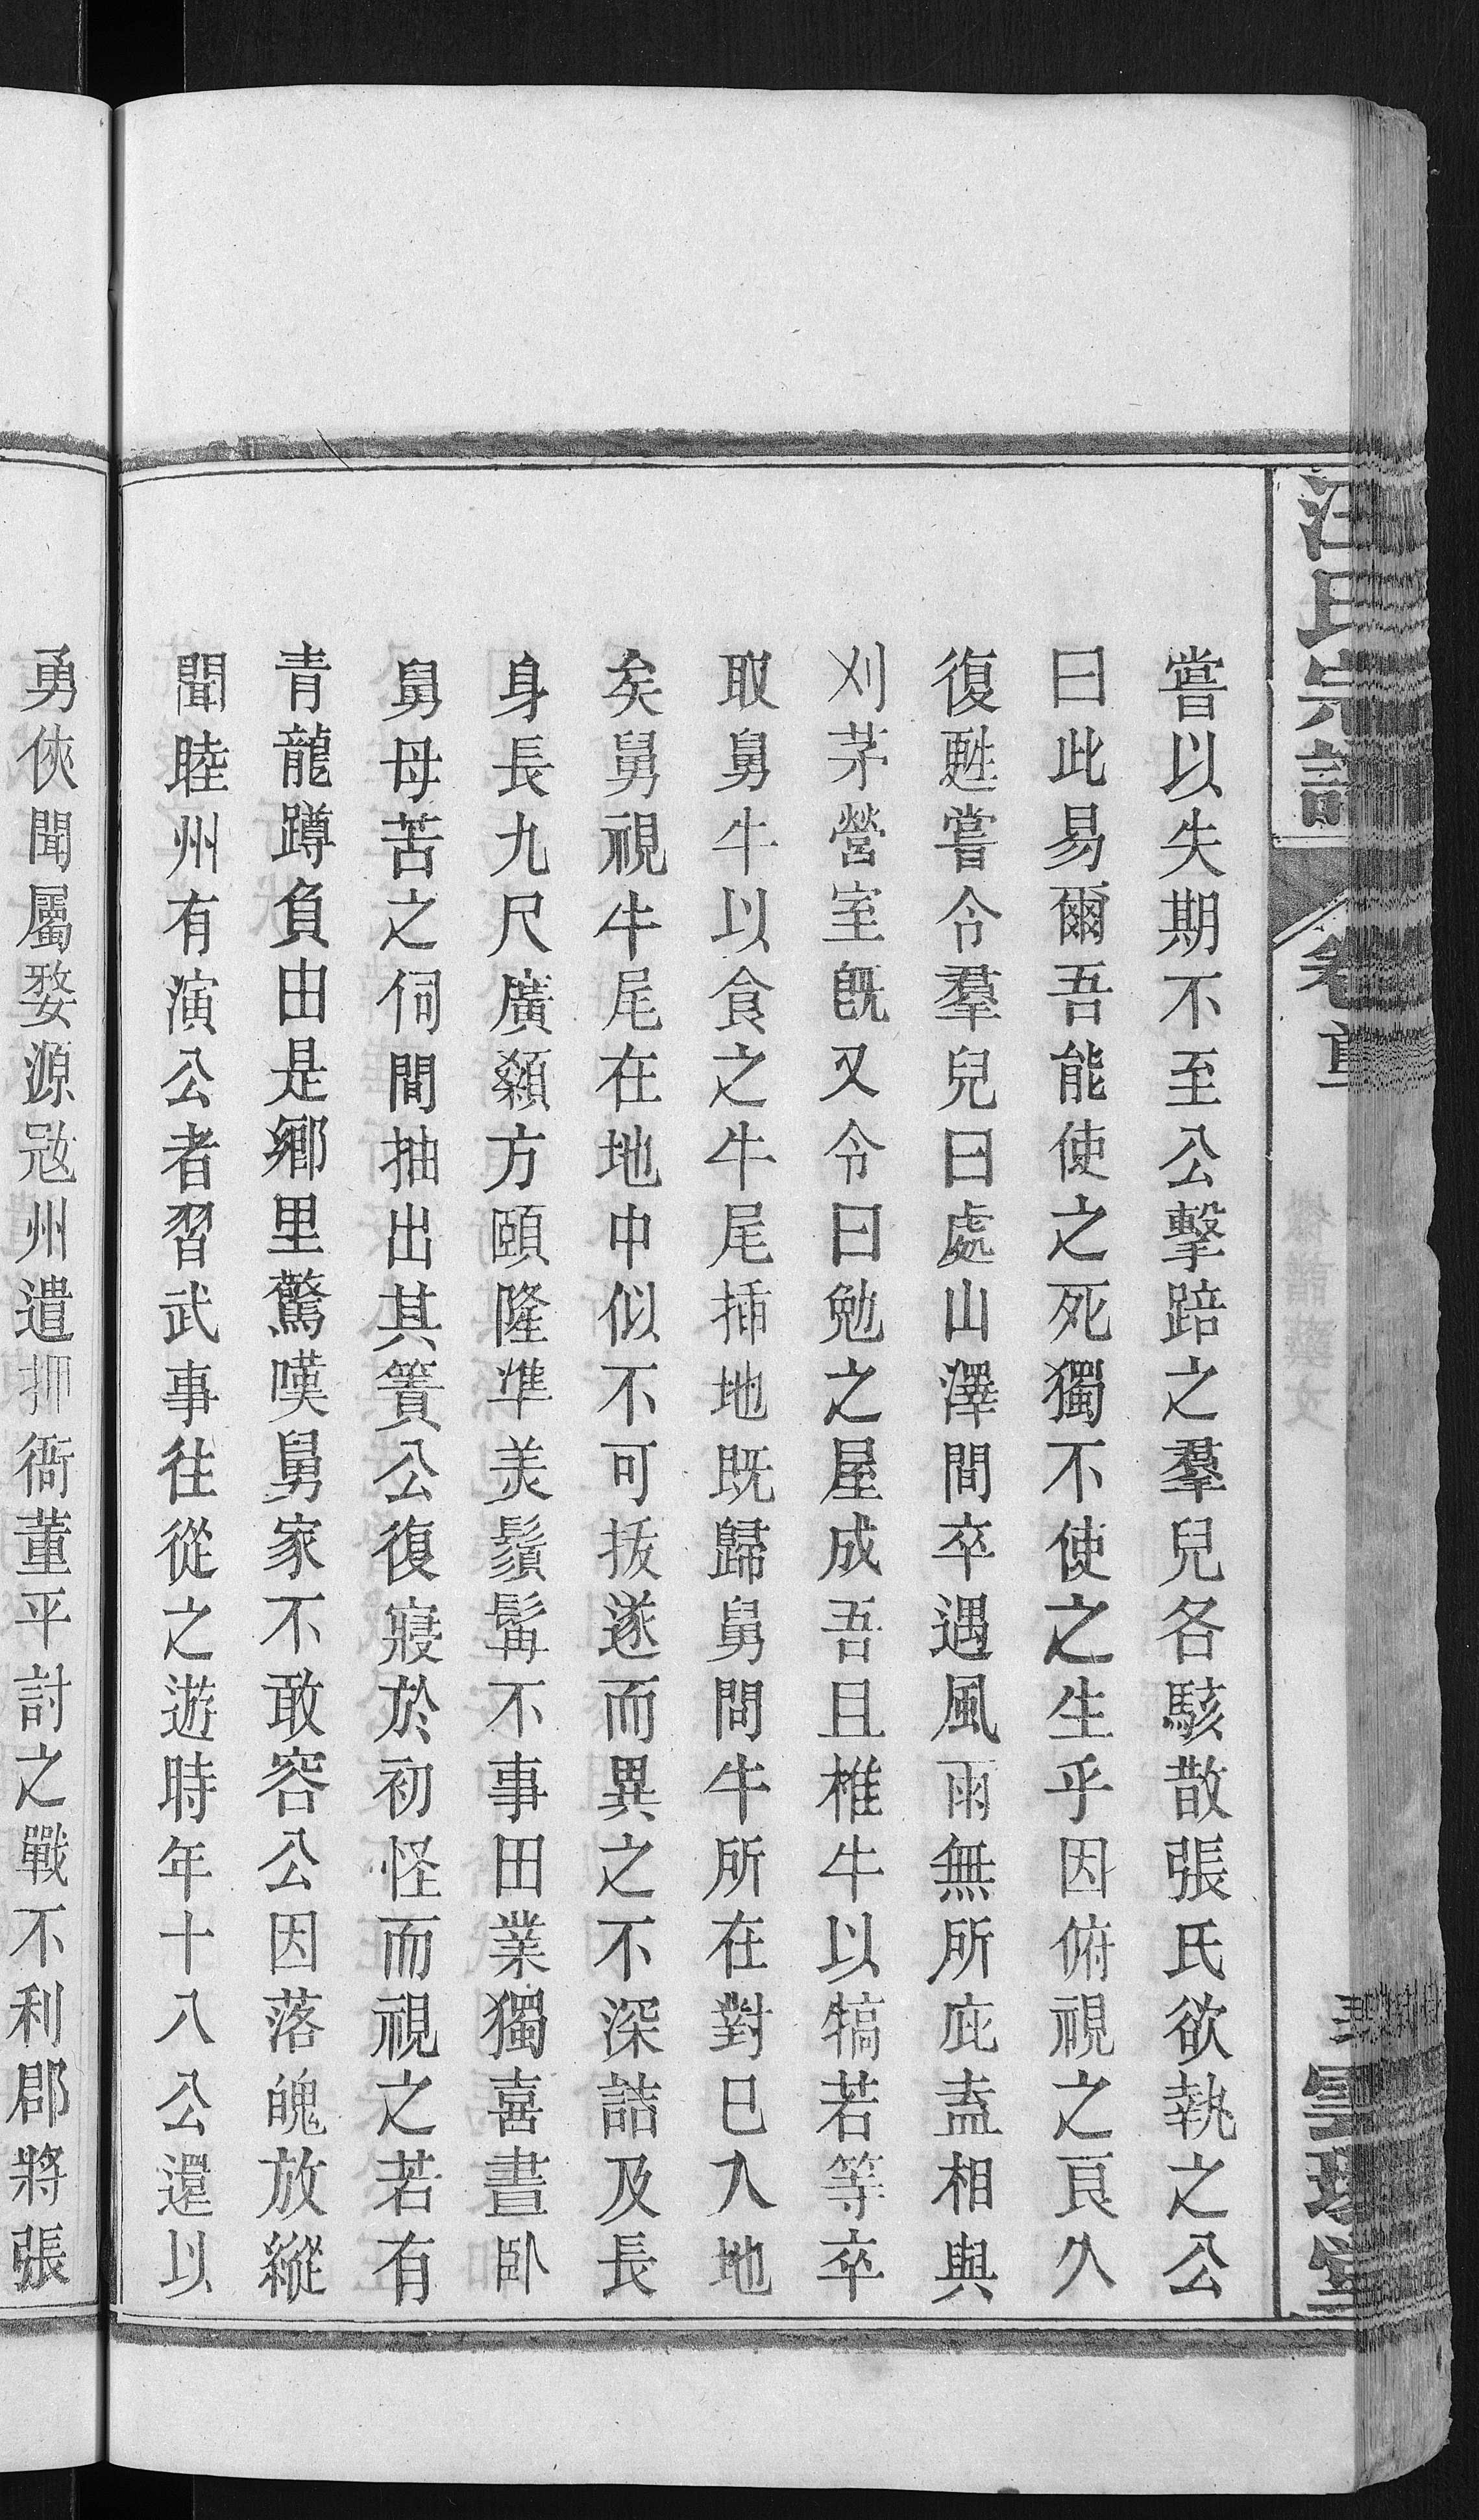 汪氏宗譜
卷首
嘗以失期不至公擊踣之羣兒各駭散張氏欲執之公
曰此易爾吾能使之死獨不使之生乎因俯視之良久
復甦嘗令羣兒曰處山澤間卒遇風雨無所庇盍相與
刈茅營室旣又令曰勉之屋成吾且椎牛以犒若等卒
取舅牛以食之牛尾揷地既歸舅問牛所在對巳入地
矣舅視牛尾在地中似不可拔遂而異之不深詰及長
身長九尺廣顙方頤隆準美鬚髯不事田業獨喜晝臥
舅母苦之伺間抽出其簀公復寢於初怪而視之若有
青龍蹲負由是鄉里驚嘆舅家不敢容公因落魄放縱
聞睦州有演公者習武事往從之遊時年十八公還以
勇俠聞屬婺源宼州遣押衙董平討之戰不利郡將張